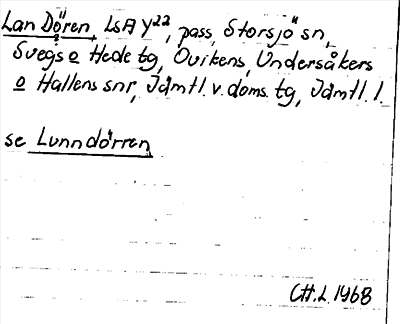 Lan Dören, LSA Y22, pass, Storsjö sn,
Svegs o Hede tg, Ovikens, Undersåkers
o Hallens snr, Jämtl. v. doms. tg, Jämtl. l.
se Lunndörren
CH.L. 1968